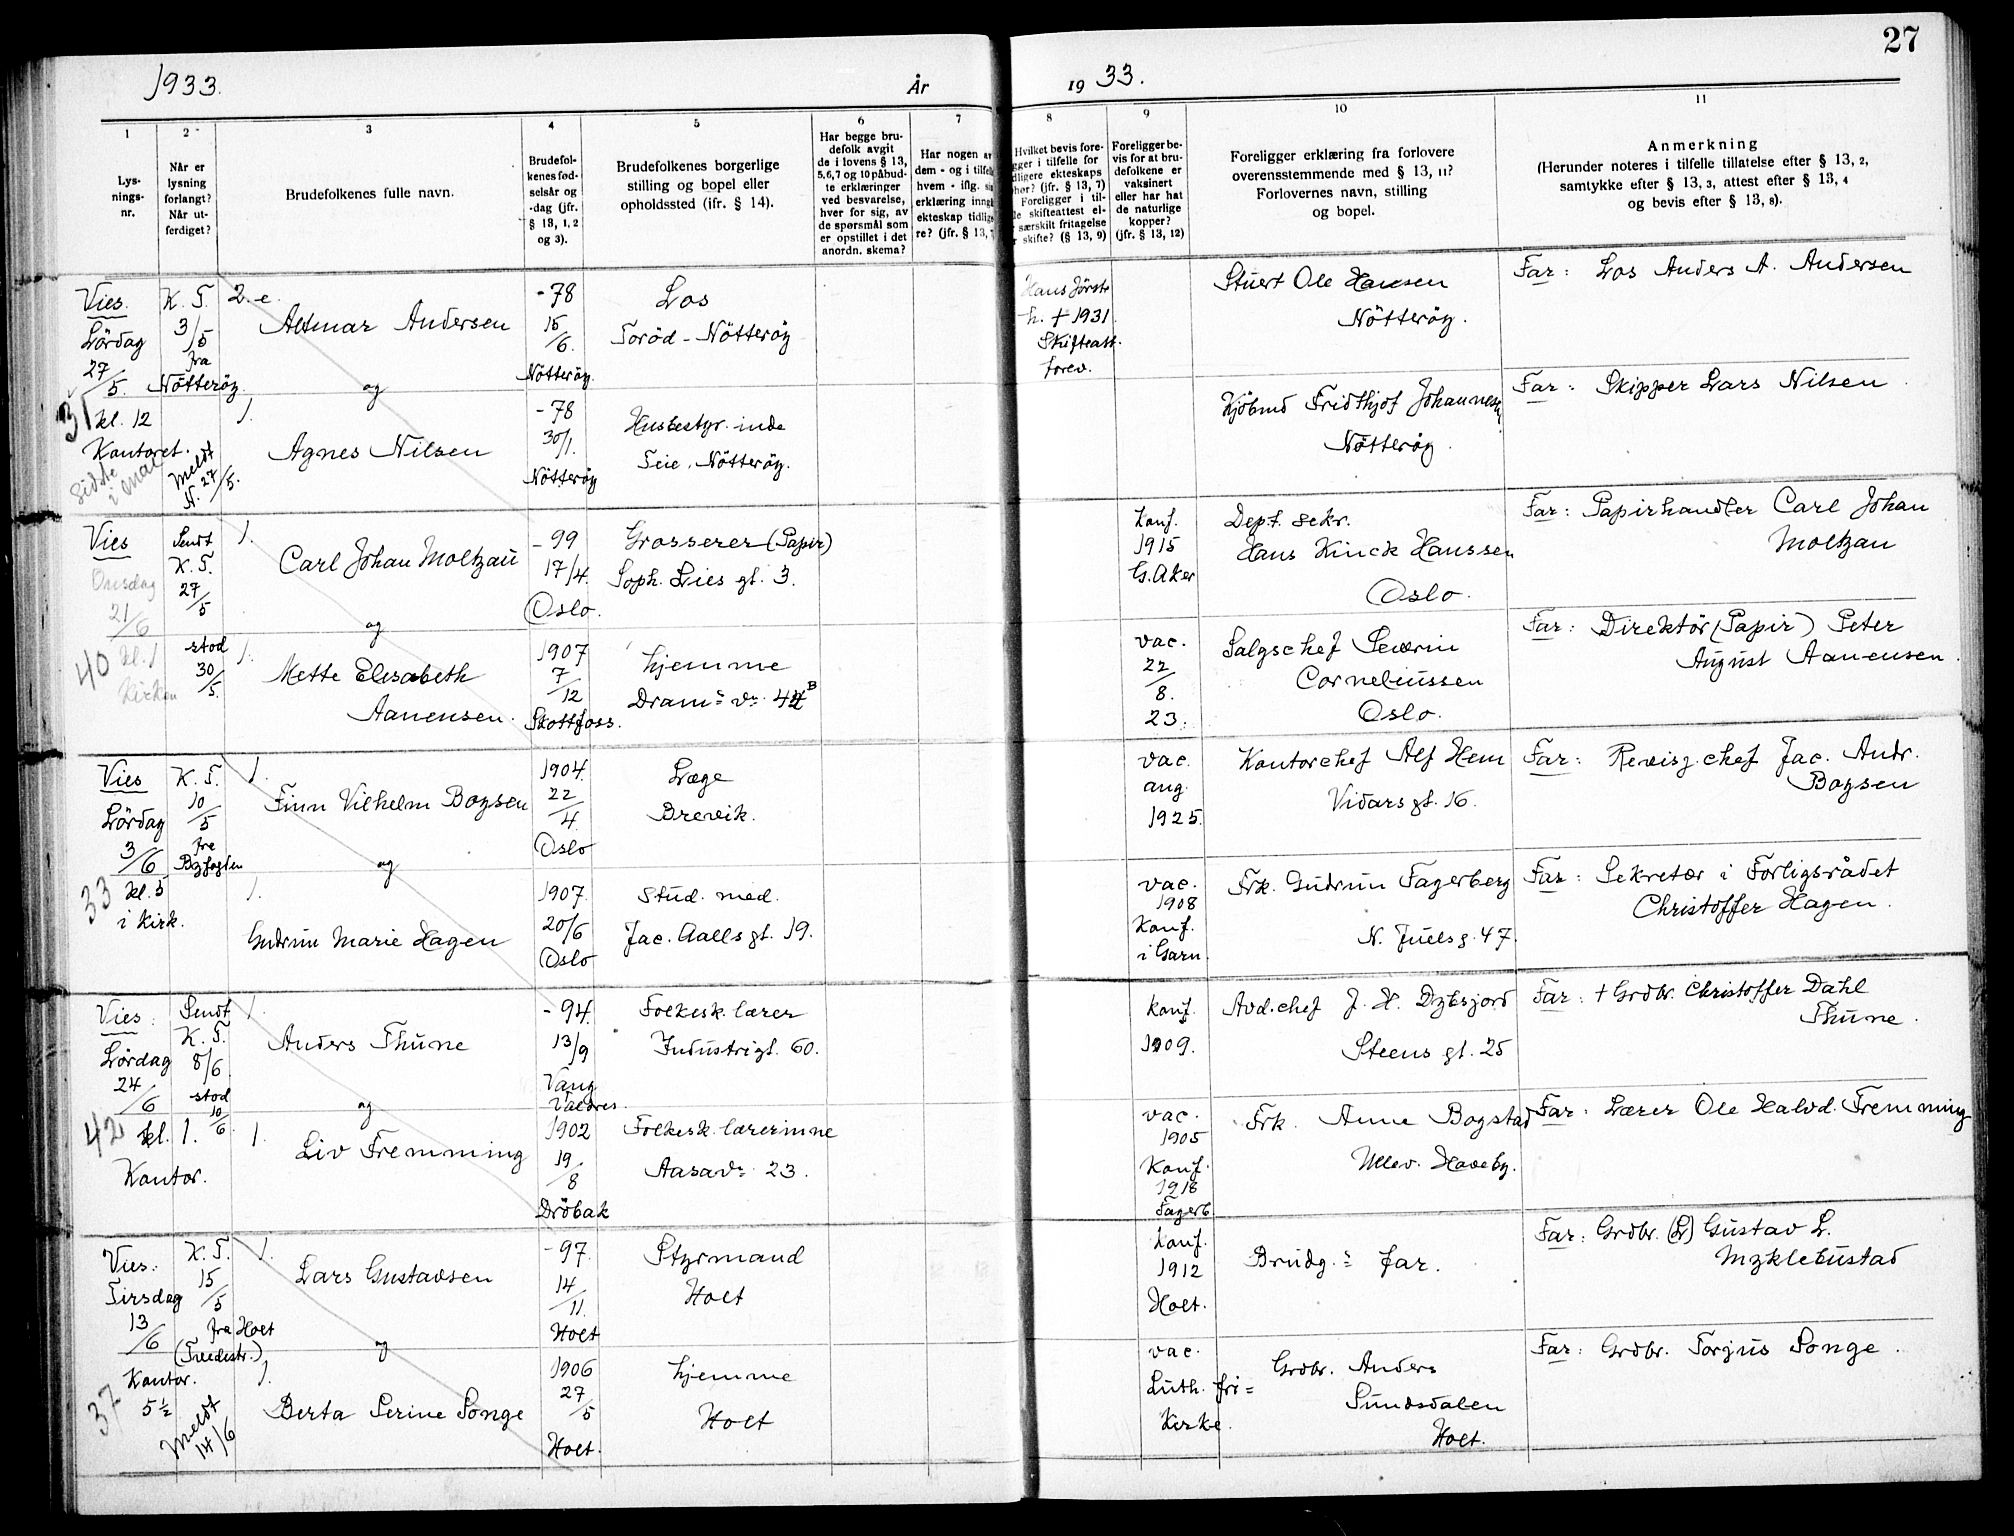 27
1933.
År
19 33.
1
2
3
4
5
6
7
8
9
10
11
Lys-
nings-
nr.
Når er
lysning
forlangt?
Når ut-
ferdiget?
Brudefolkenes fulle navn.
Brudefol-
kenes fød-
selsår og
-dag (jfr.
§ 13, 1, 2
og 3).
Brudefolkenes borgerlige
stilling og bopel eller
opholdssted (ifr. § 14).
Har begge bru-
defolk avgit
de i lovens § 13,
5,6,7 og 10 påbud-
te erklæringer
ved besvarelse,
hver for sig, av
de spørsmål som
er opstillet i det
anordn. skema?
Har nogen av
dem - og i tilfelle
hvem - iflg.
erklæring inngå
ekteskap tidlig
re? (jfr. § 13,
Hvilket bevis fore-
gger i tilfelle for
dligere ekteskaps
hør? (jfr. § 13, 7)
Foreligger i til-
de skifteattest el-
særskilt fritagelse
r skifte? (§ 13, 9)
Foreligger be-
vis for at bru-
defolkene er
vaksinert
eller har hat
de naturlige
kopper?
(jfr. § 13, 12)
Foreligger erklæring fra forlovere
overensstemmende med § 13, 11?
Forlovernes navn, stilling
og bopel.
Anmerkning
(Herunder noteres i tilfelle tillatelse efter § 13, 2,
samtykke efter § 13, 3, attest efter § 13, 4
og bevis efter § 13, 8).
Vies.
Lördag
27/5.
31
kl. 12
Kontoret.
Sidste
i mai
K. T.
3/5
fra
Nötteröy.
Meldt
N. 27/5.
2. e.
Altmar Andersen
og
1.
Agnes Nilsen
-78
15/6.
Nötteröy.
-78
30/1.
Nötteröy
Los
Toröd - Nötteröy
Husbestyrinde
Teie, Nötteröy.
Hans först
h. + 1931.
Skifteatt.
forev.
Stuert Ole Hansen
Nötteröy.
Kjöbmd Fridthjof Johannesen
Nötteröy.
Far: Los Anders A. Andersen
Far: Skipper Lars Nilsen
Vies
Onsdag
21/6
40
kl. 1
Kirken
Sendt
K. T.
27/5
stod
30/5.
1.
Carl Johan Moltzau
og
1.
Mette Elisabeth
Aanensen.
-99
17/4.
Oslo.
1907
7/12
Skottfoss.
Grosserer (Papir)
Soph. Lies gt. 3.
hjemme
Dram.s v. 42 B
Konf.
1915
G. Aker
vac.
22/8.
23.
Dept. sekr.
Hans Kinck Hanssen
Oslo.
Salgschef Severin
Corneliussen
Oslo.
Far: Papirhandler Carl Johan
Moltzau
Far: Direktör (Papir) Peter
August Aanensen.
Vies
Lördag
3/6
33
kl. 5
i Kirk.
K. T.
10/5
fra
Byfogden
1.
Finn Vilhelm Boysen
og
1.
Gudrun Marie Hagen
1904.
22/4.
Oslo
1907.
20/6
Oslo
Læge
Brevik.
Stud. med.
Jac. Aalls gt. 19.
vac.
aug.
1925.
vac.
1908
Konf.
i Garn.
Kontorchef Alf Hem
Vidars gt. 16.
Frk. Gudrun Fagerberg
N. Juels g. 47.
Far: Revisj. chef Jac. Andr.
Boysen
Far: Sekretær i Forligsrådet
Christoffer Hagen.
Vies.
Lördag
24/6
42
kl. 1.
Kontor.
Sendt
K. T.
8/6
stod
10/6
1.
Anders Thune
og
1.
Liv Fremming
-94.
13/9
Vang
Valdres.
1902
19/8
Dröbak
Folkesk. lærer
Industrigt. 60.
Folkesk. lærerinne
Aasav. 23.
Konf.
1909.
vac.
1905
Konf.
1918
Fagerb.
Avd.chef J. H. Dybsjord
Steens gt. 25
Frk. Anne Bogstad
Ullev. Haveby.
Far: + Grdbr. Christoffer Dahl
Thune.
Far: Lærer Ole Halvd. Fremming
Vies.
Tirsdag
13/6
Kontor.
5½
37
K. T.
15/5
fra Holt
(Tvedestr.)
Meldt
14/6
1.
Lars Gustavsen
og
1.
Berta Serine Songe
-97.
14/11.
Holt
1906
27/5
Holt.
Styrmand
Holt
hjemme
Holt
Konf.
1912
Holt.
vac.
Luth. fri=
Kirke.
Brudg.s far.
Grdbr. Anders
Sundsdalen
Holt.
Far: Grdbr. (L) Gustav L.
Myklebustad
Far: Grdbr. Torjus Songe.